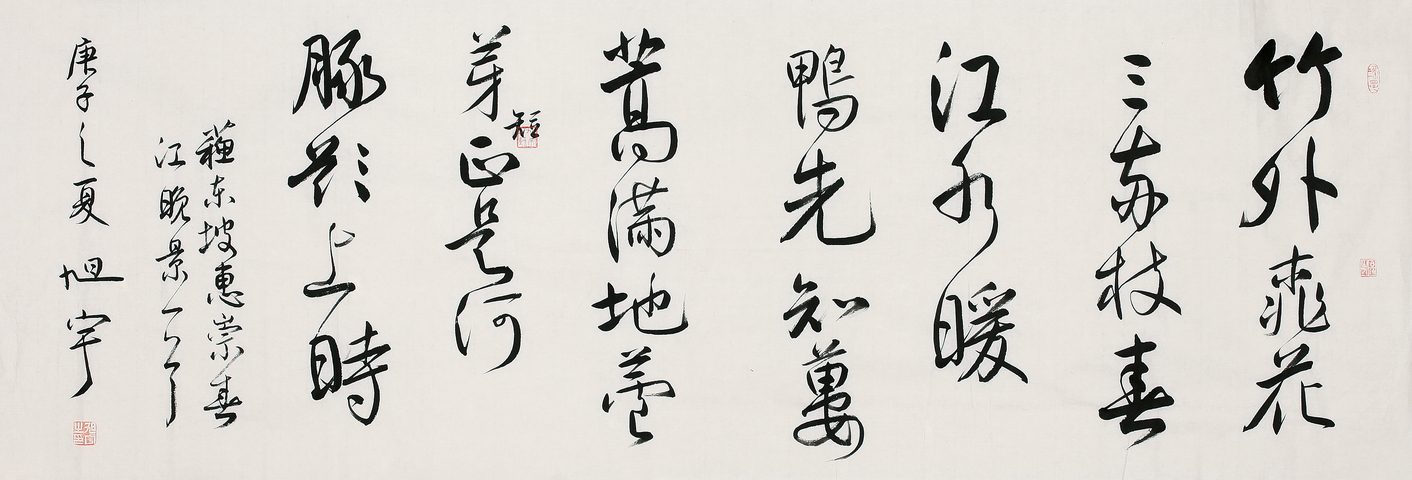 竹外桃花
三两枝春
江水暖
鸭先知蒌
蒿满地芦
芽短正是河
豚欲上時
蘇东坡惠崇春
江晚景一首
庚子之夏 旭宇